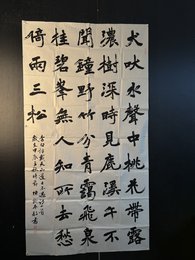 犬吠水聲中桃花帶露
濃樹深時見鹿溪午不
聞鐘野竹分青靄飛泉
挂碧峯無人知所去愁
倚兩三松